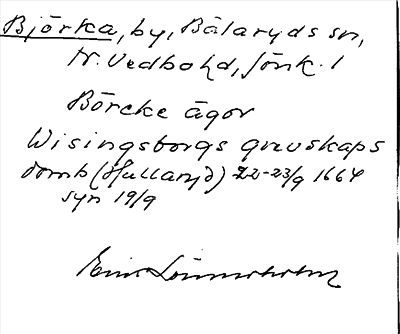 Björka, by, Bälaryds sn,
N. Vedbo hd, Jönk. l
Börcke ägor
Wisingsborgs grevskaps
domb (Hullaryd) 22-23/9 1664
syn 19/9